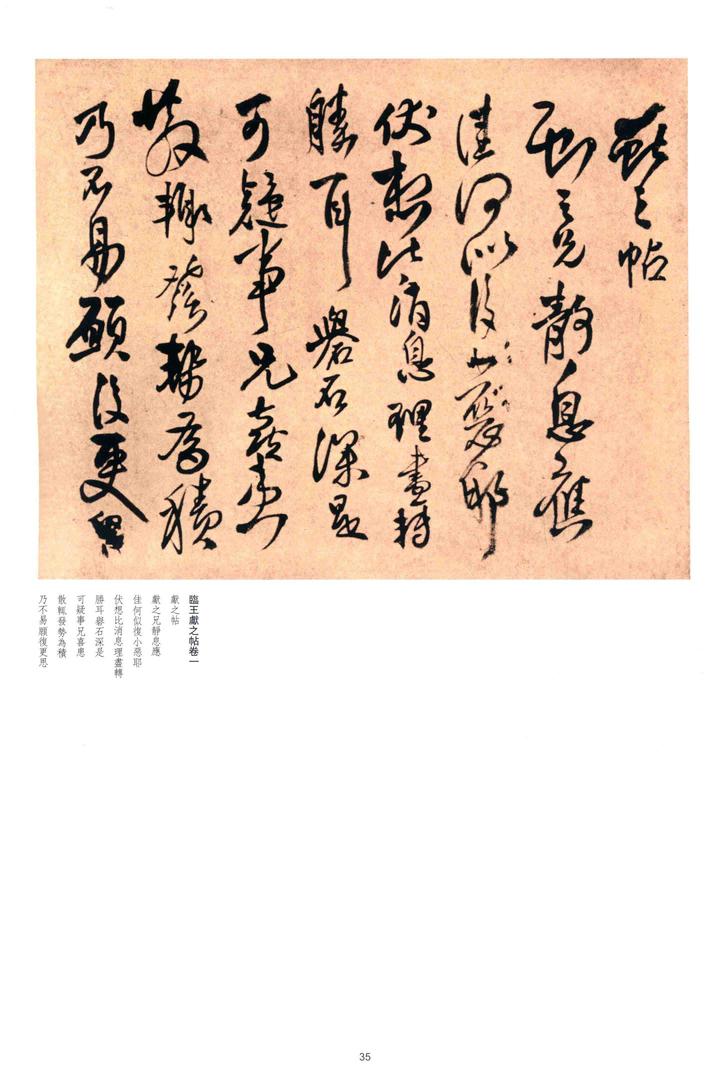 獻之帖
獻之兄靜息應
佳何似復小惡耶
伏想比消息理盡轉
勝耳礜石深是
可疑事兄喜患
散輒發勢為積
乃不易願復更思
臨王獻之帖卷一
獻之帖
獻之兄靜息應
佳何似復小惡耶
伏想比消息理盡轉
勝耳礜石深是
可疑事兄喜患
散輒發勢為積
乃不易願復更思
35